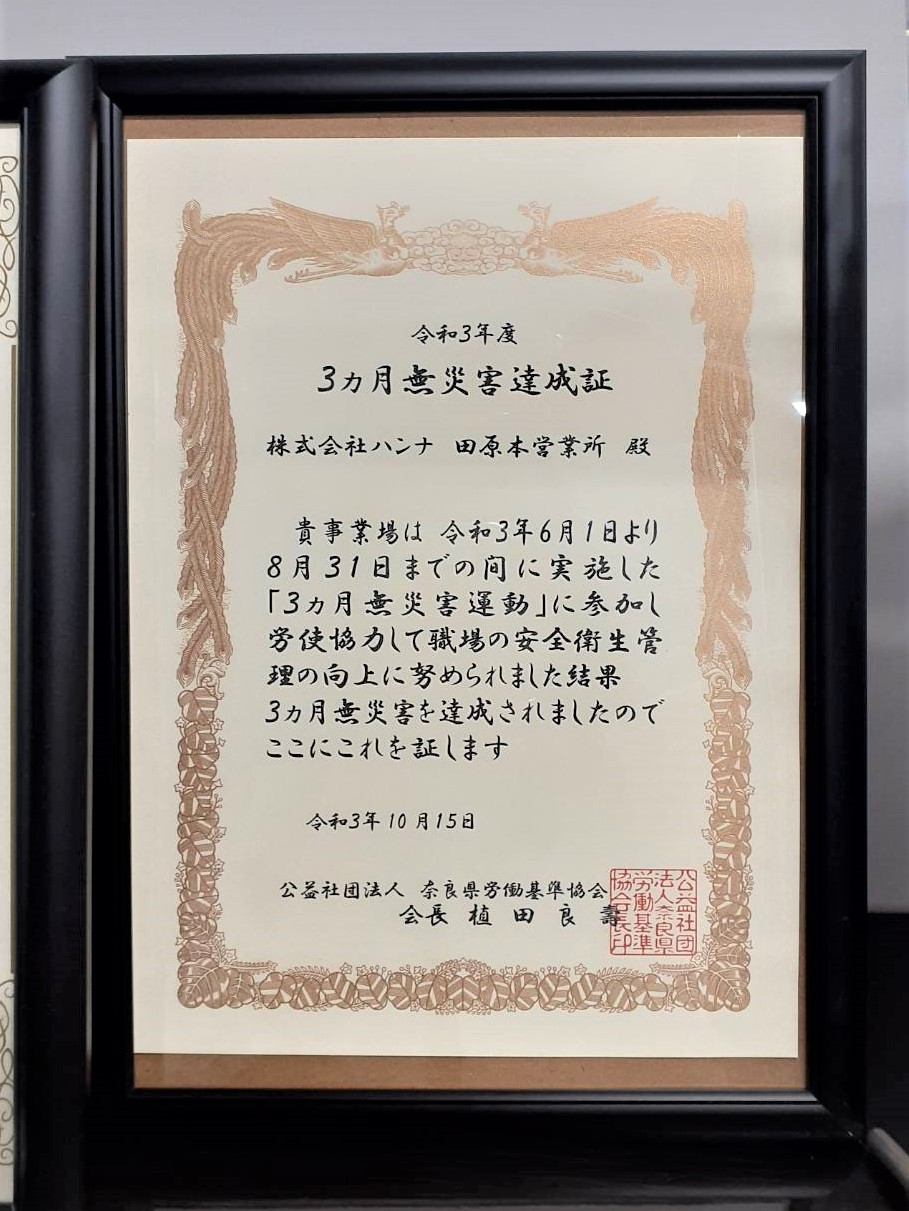 令和3年度
3ヵ月無災害達成証
株式会社ハンナ 田原本営業所 殿
貴事業場は 令和3年6月1日より
8月31日までの間に実施した
「3ヵ月無災害運動」に参加し
労使協力して職場の安全衛生管
理の向上に努められました結果
3ヵ月無災害を達成されましたので
ここにこれを証します
令和3年10月15日
公益社団法人 奈良県労働基準協会
会長 植田良壽
公益社団
法人奈良県
労働基準
協会長印